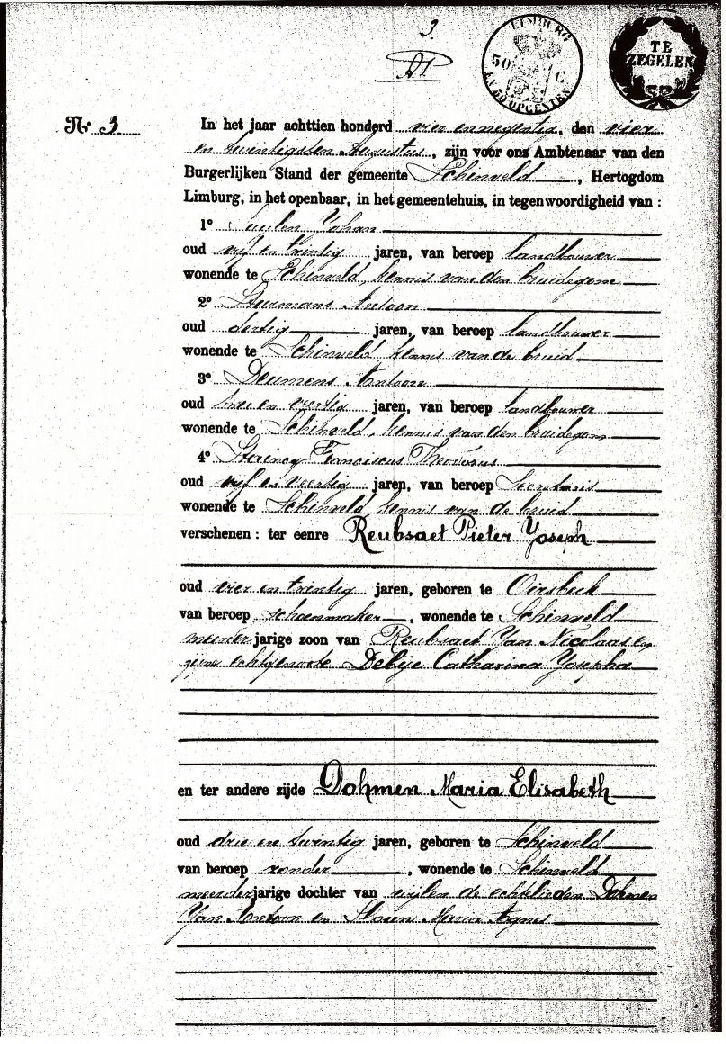 3.
LIMBURG
50 C
EN 38 OPCENTEN
TE
ZEGELEN
Nr. 3
In het jaar achttien honderd vier en negentig, den vier
en twintigsten Augustus, zijn voor ons Ambtenaar van den
Burgerlijken Stand der gemeente Schinveld, Hertogdom
Limburg, in het openbaar, in het gemeentehuis, in tegenwoordigheid van :
1º Johan
oud vijf en twintig jaren, van beroep landbouwer
wonende te Schinveld, kennis van den bruidegom
2º Antoon
oud dertig jaren, van beroep landbouwer
wonende te Schinveld kennis van de bruid
3º Deumens Antoon
oud en veertig jaren, van beroep landbouwer
wonende te Schinveld, kennis van den bruidegom
4º Franciscus
oud vijf en veertig jaren, van beroep Secretaris
wonende te Schinveld, kennis van de bruid
verschenen : ter eenre Reubsaet Pieter Joseph
oud vier en twintig jaren, geboren te Oirsbeek
van beroep schoenmaker, wonende te Schinveld
meerder jarige zoon van Reubsaet Jan Nicolaas en
echtgenoote Debije Catharina Josepha
en ter andere zijde Dohmen Maria Elisabeth
oud drie en twintig jaren, geboren te Schinveld
van beroep zonder, wonende te Schinveld
meerderjarige dochter van wijlen de echtelieden Dohmen
Jan Antoon en Maria Agnes